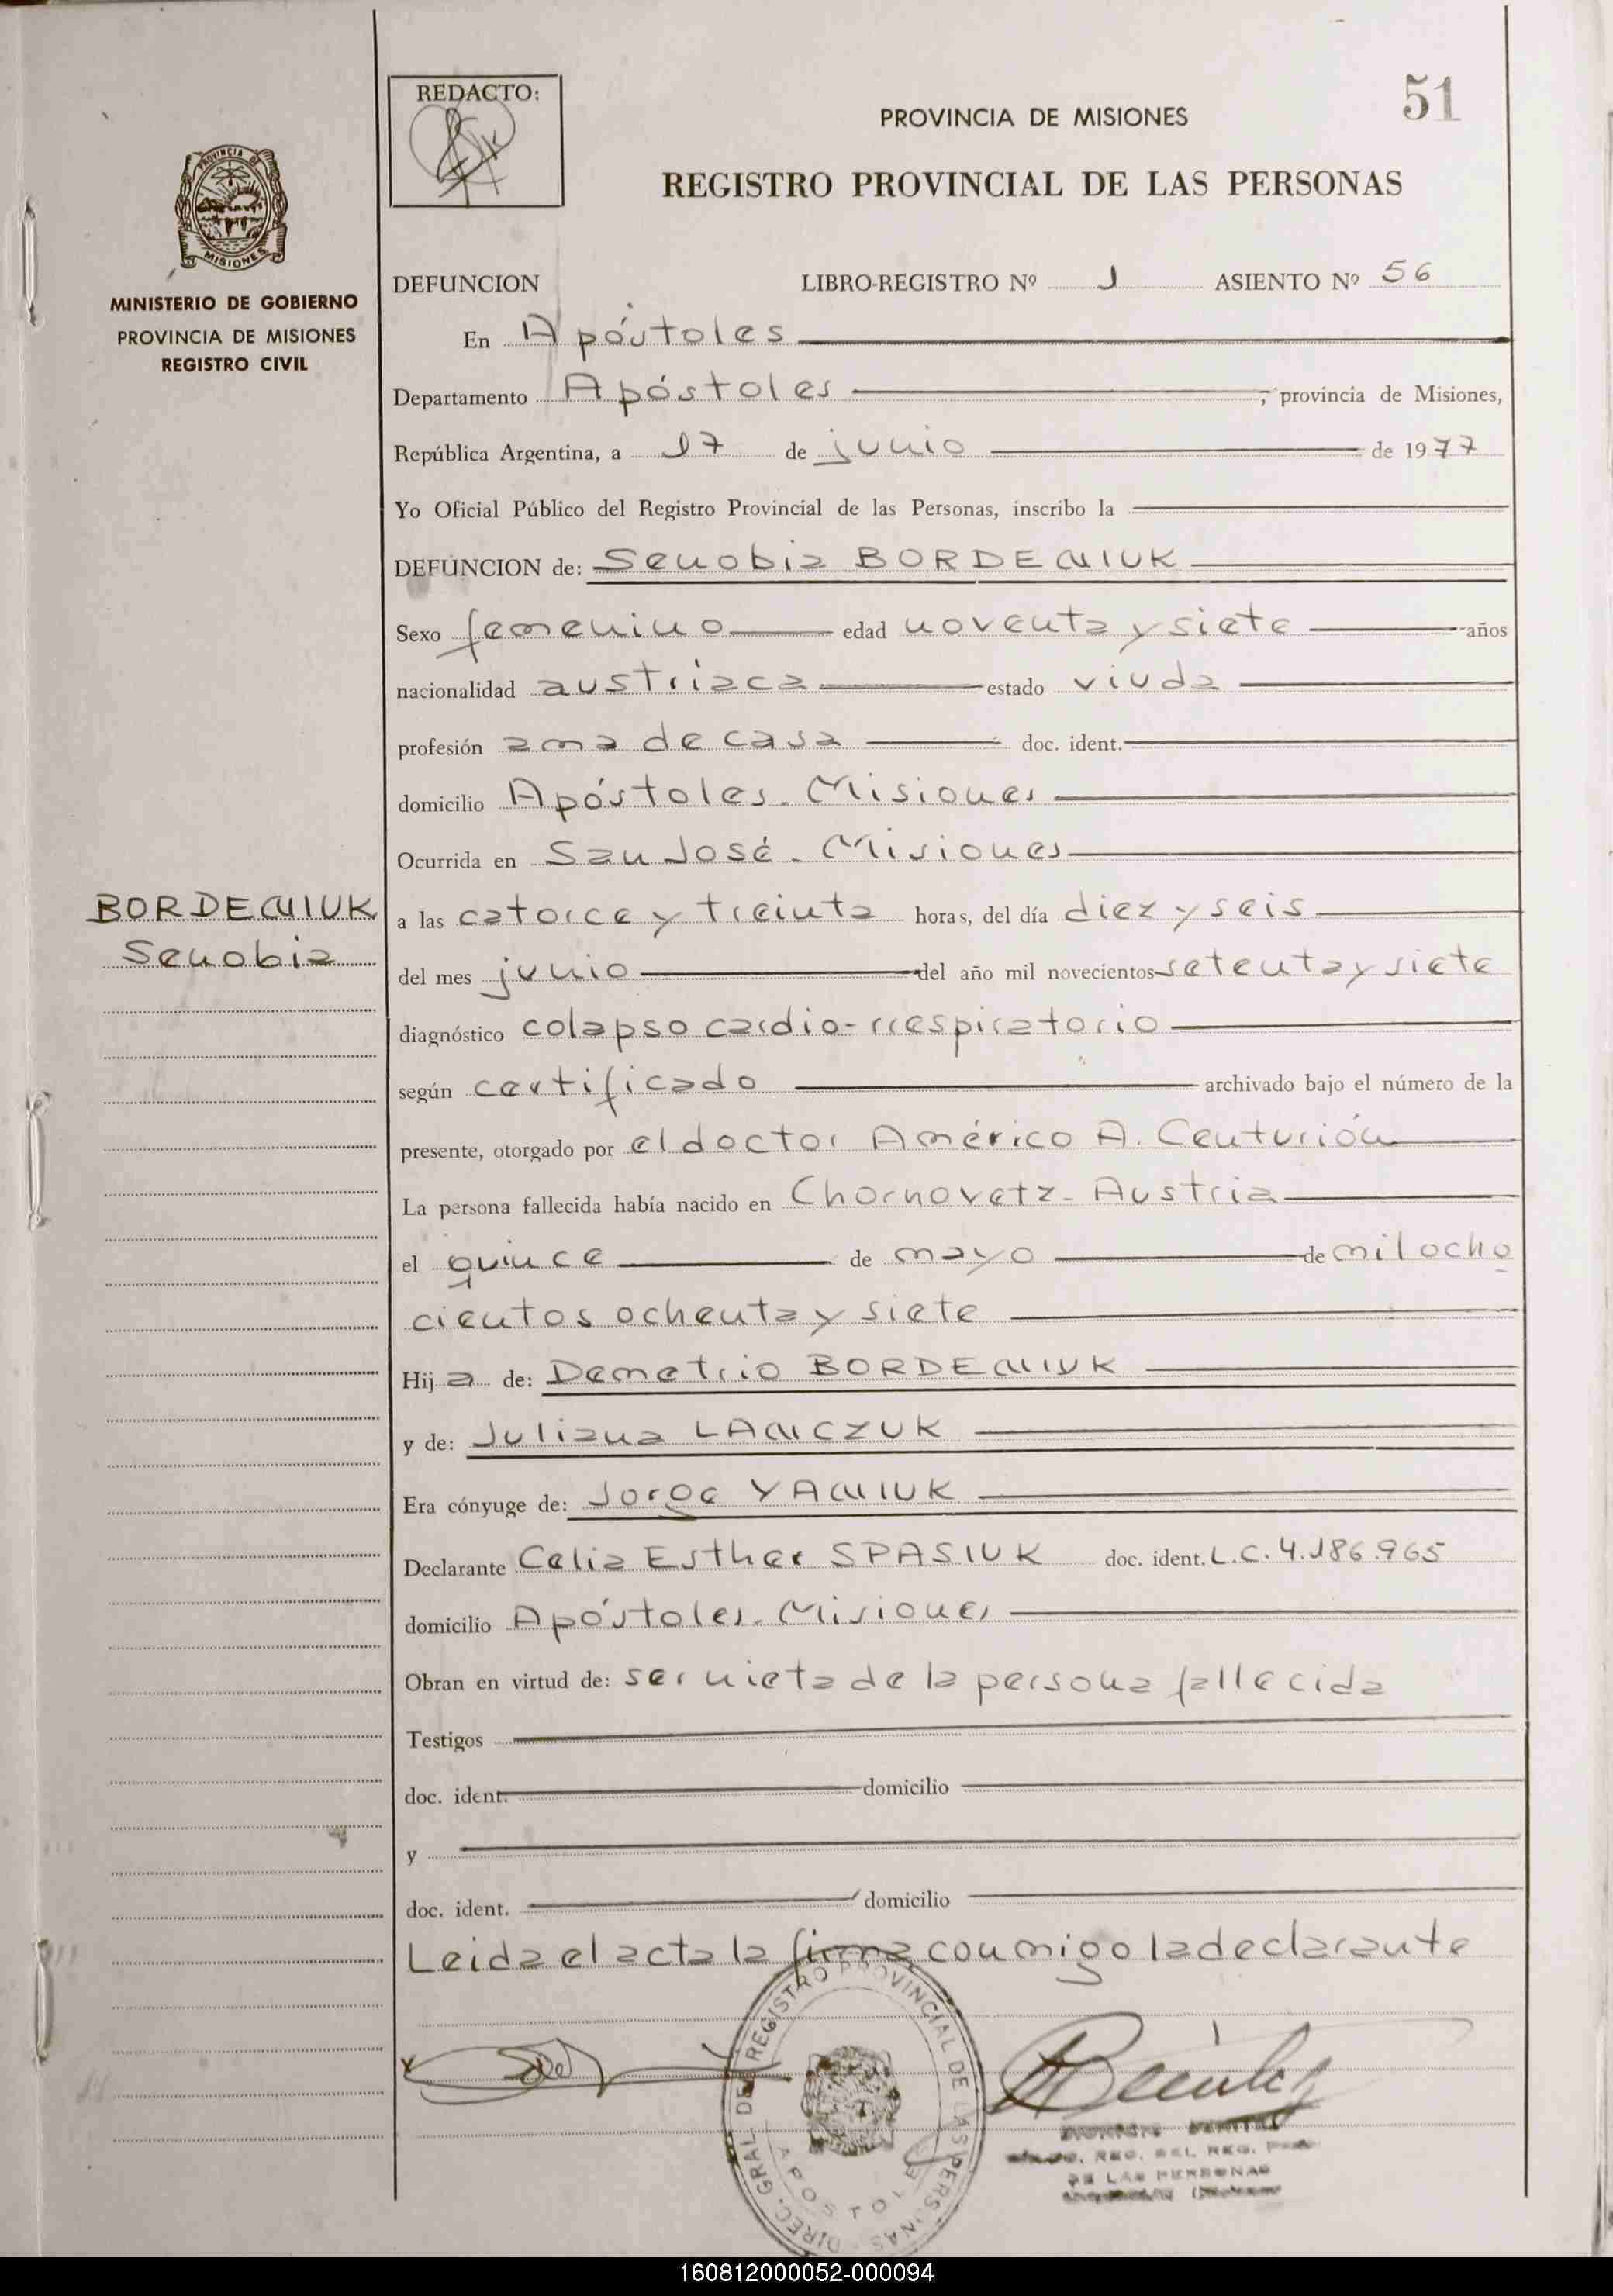 51
REDACTO:
PROVINCIA DE MISIONES
REGISTRO PROVINCIAL DE LAS PERSONAS
PROVINCIA DE
MISIONES
MINISTERIO DE GOBIERNO
PROVINCIA DE MISIONES
REGISTRO CIVIL
DEFUNCION LIBRO-REGISTRO Nº 1 ASIENTO Nº 56
En Apóstoles
Departamento Apóstoles, provincia de Misiones,
República Argentina, a 17 de junio de 1977
Yo Oficial Público del Registro Provincial de las Personas, inscribo la
DEFUNCION de: Senobia BORDENIUK
Sexo femenino edad noventa y siete años
nacionalidad austriaca estado viuda
profesión ama de casa doc. ident.
domicilio Apóstoles - Misiones
Ocurrida en San José - Misiones
BORDENIUK
Senobia
a las catorce y treinta horas, del día diez y seis
del mes junio del año mil novecientos setenta y siete
diagnóstico colapso cardio-rrespiratorio
según certificado archivado bajo el número de la
presente, otorgado por el doctor Américo A. Centurión
La persona fallecida había nacido en Chornovetz - Austria
el quince de mayo de mil ocho
cientos ochenta y siete
Hija de: Demetrio BORDENIUK
y de: Juliana LANCZUK
Era cónyuge de: Jorge YANIUK
Declarante Celia Esther SPASIUK doc. ident. L.C. 4.186.965
domicilio Apóstoles - Misiones
Obran en virtud de: ser nieta de la persona fallecida
Testigos
doc. ident. domicilio
y
doc. ident. domicilio
Leida el acta la firma conmigo la declarante
DIREC. GRAL. DEL REGISTRO PROVINCIAL DE LAS PERSONAS
APOSTOLES
DE LAS PERSONAS
160812000052-000094